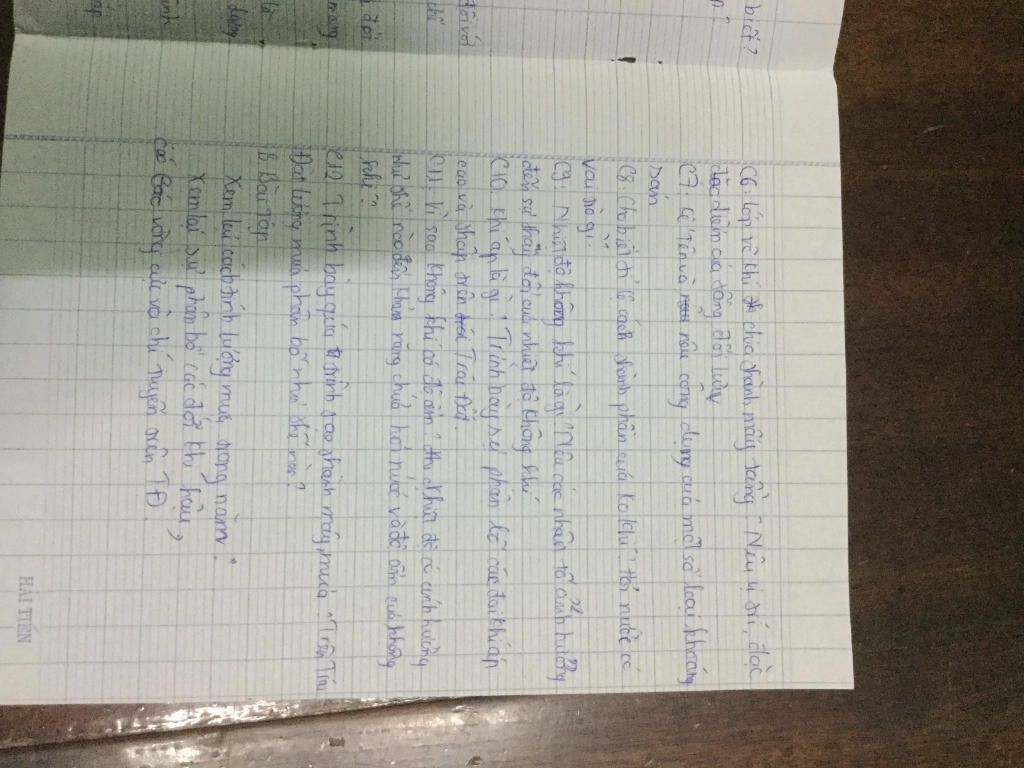 biết?
C6: Lớp vỏ khí chia thành mấy tầng? Nêu vị trí, đặc
điểm của tầng đối lưu
C7: Kể tên và nêu công dụng của một số loại khoáng
sản
C8: Cho biết tỉ lệ các thành phần của ko khí? Hơi nước có
vai trò gì.
C9: Nhiệt độ không khí là gì? Nêu các nhân tố ảnh hưởng
đến sự thay đổi của nhiệt độ không khí
C10: Khí áp là gì? Trình bày sự phân bố các đai khí áp
cao và thấp trên Trái Đất.
C11: Vì sao không khí có độ ẩm? Nhiệt độ có ảnh hưởng
như thế nào đến khả năng chứa hơi nước và độ ẩm của không
khí?
C12: Trình bày quá trình tạo thành mây, mưa? Trên Trái
Đất lượng mưa phân bố như thế nào?
B. Bài tập
Xem lại cách tính lượng mưa trong năm.
Xem lại sự phân bố các đới khí hậu,
các vòng cực và chí tuyến trên TĐ.
đối với
đổi
mang
HẢI TIẾN